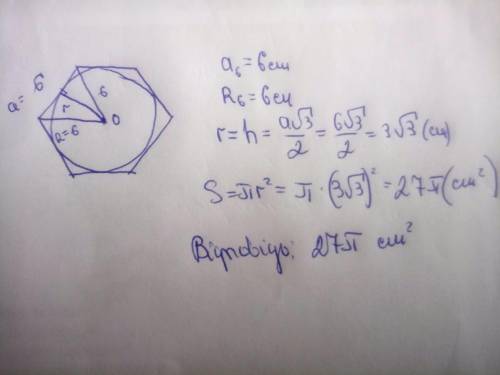 a = 6
6
r
R=6
O
a₆ = 6 см
R₆ = 6 см
r = h = a√3/2 = 6√3/2 = 3√3 (см)
S = πr² = π · (3√3)² = 27π (см²)
Відповідь: 27π см²